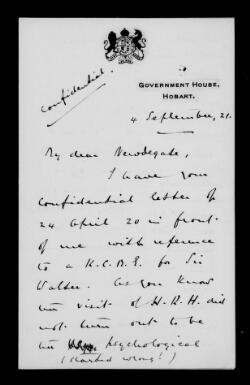 Confidential.
GOVERNMENT HOUSE,
HOBART.
4 September, 21.
My dear Newdegate,
I have your
Confidential letter of
24 April 20 in front
of me with reference
to a K.C.B.E. for Sir
Walter. As you know
the visit of H.R.H. did
not turn out to be
the psychological
(started wrong!)